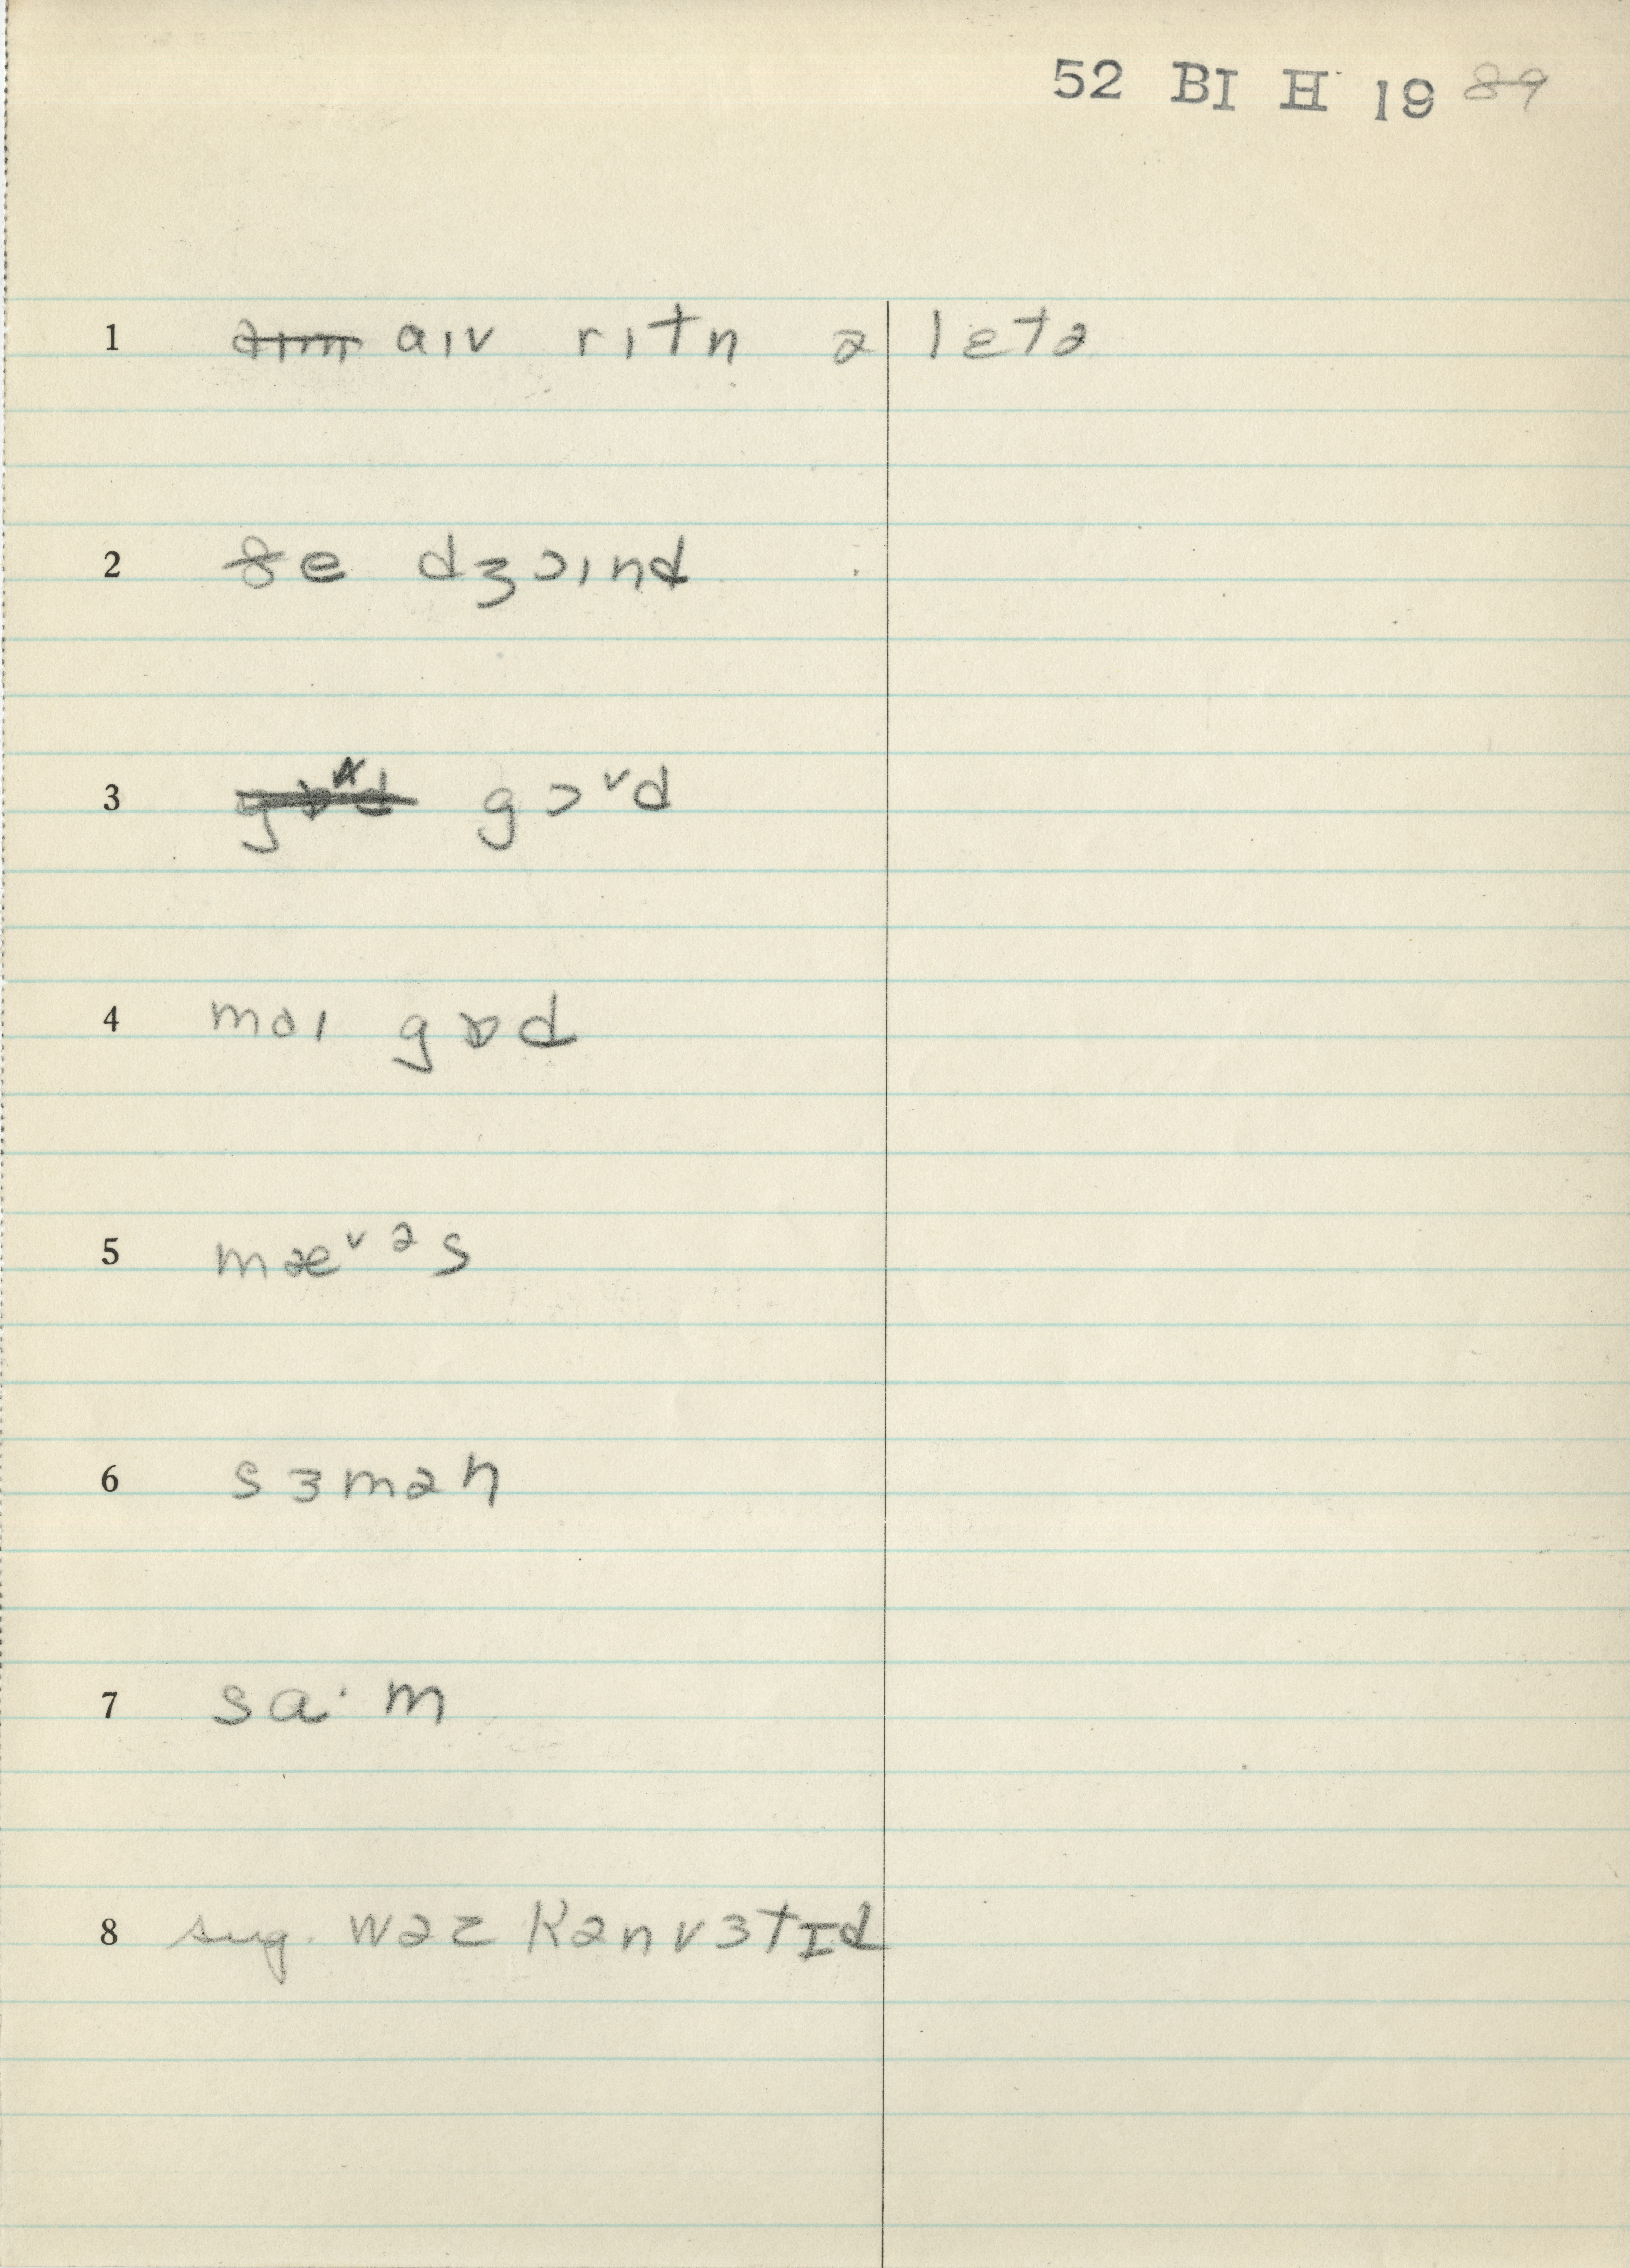 52 BI H 19 89
1 aɪv rɪtn ə lɛtə
2 ðe dʒɔɪnd
3 gɔᵛd
4 mɑɪ gɒd
5 mæᵛᵊs
6 sɜmən
7 sa·m
8 sug. wəz kənvɜtɪd